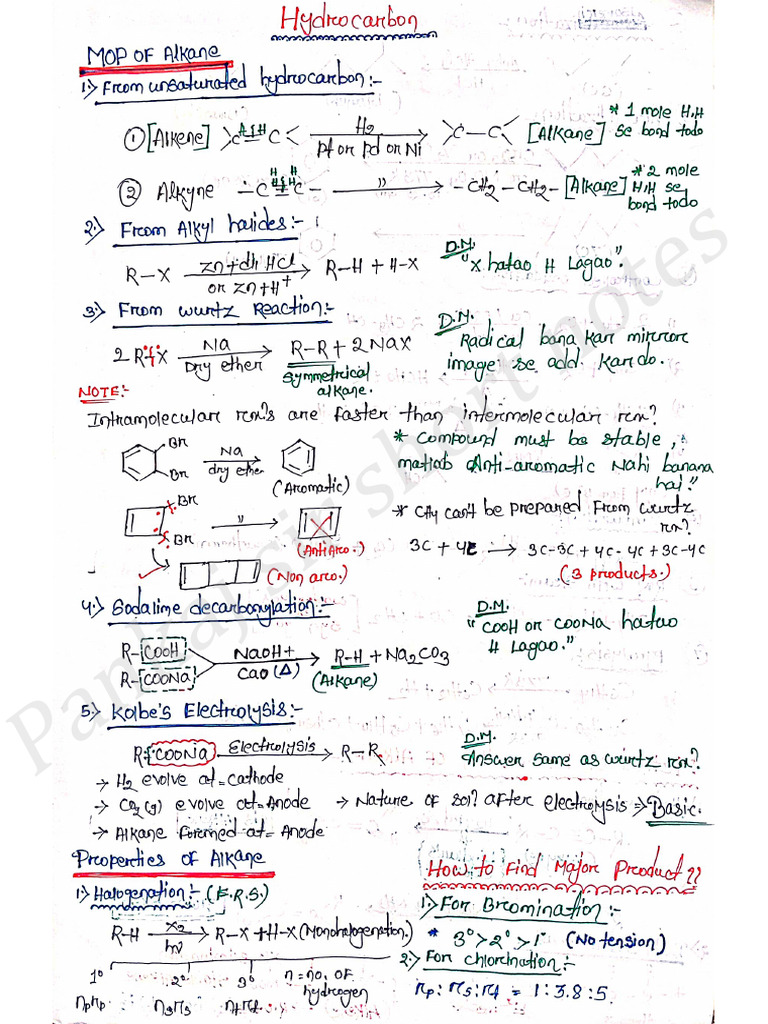 Hydrocarbon
MOP OF Alkane
1.) From unsaturated hydrocarbon:-
① [Alkene] >C=C< H₂ Pt or Pd or Ni >C-C< [Alkane] * 1 mole H.H se bond todo
② Alkyne -C≡C- " -CH₂-CH₂- [Alkane] * 2 mole H.H se bond todo
2.) From Alkyl halides:-
R-X Zn+dil HCl or Zn+H⁺ → R-H + H-X D.M. "X hatao H Lagao".
3.) From wurtz Reaction:-
2 R-X Na Dry ether → R-R + 2NaX D.M. Radical bana kar mirror image se add kardo.
symmetrical alkane.
NOTE:-
Intramolecular rxn's are faster than intermolecular rxn?
Br Br Na dry ether → (Aromatic)
* Compound must be stable, matlab Anti-aromatic Nahi banana hai"
Br Br " → (Anti Aro.)
* CH₄ can't be prepared From wurtz rxn?
(Non aro.)
3C + 4C → 3C-3C + 4C-4C + 3C-4C
(3 products.)
4.) Sodalime decarboxylation:-
R-COOH
R-COONa NaOH+ CaO (Δ) → R-H + Na₂CO₃
(Alkane)
D.M. "COOH or COONa hatao H Lagao."
5.) Kolbe's Electrolysis:-
R-COONa Electrolysis → R-R D.M. Answer same as wurtz rxn?
→ H₂ evolve at = Cathode
→ CO₂(g) evolve at = Anode → Nature of sol? after electrolysis ⇒ Basic.
→ Alkane formed at = Anode
Properties of Alkane
1.) Halogenation:- (F.R.S.)
R-H X₂ hν → R-X + H-X (Monohalogenation.)
1° 2° 3° n = no. of hydrogen
nₚrₚ nₛrₛ nₜrₜ
How to Find Major Product??
1.) For Bromination:-
* 3° > 2° > 1° (No tension)
2.) For chlorination:-
rₚ : rₛ : rₜ = 1 : 3.8 : 5.
Pankaj sir short notes